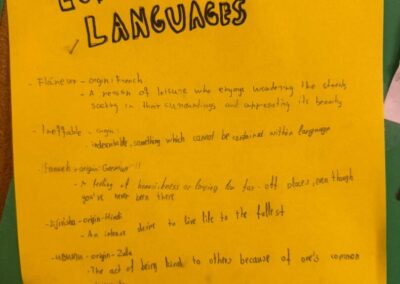 LANGUAGES
- Flâneur - origin: French
- A person of leisure who enjoys wandering the streets,
soaking in their surroundings and appreciating its beauty
- Ineffable - origin:
indescribable, something which cannot be contained within language
- origin: German
- A feeling of homesickness or longing for far-off places, even though
you've never been there
- Jijivisha - origin - Hindi
- An intense desire to live life to the fullest
- origin - Zulu
- The act of being kind to others because of one's common